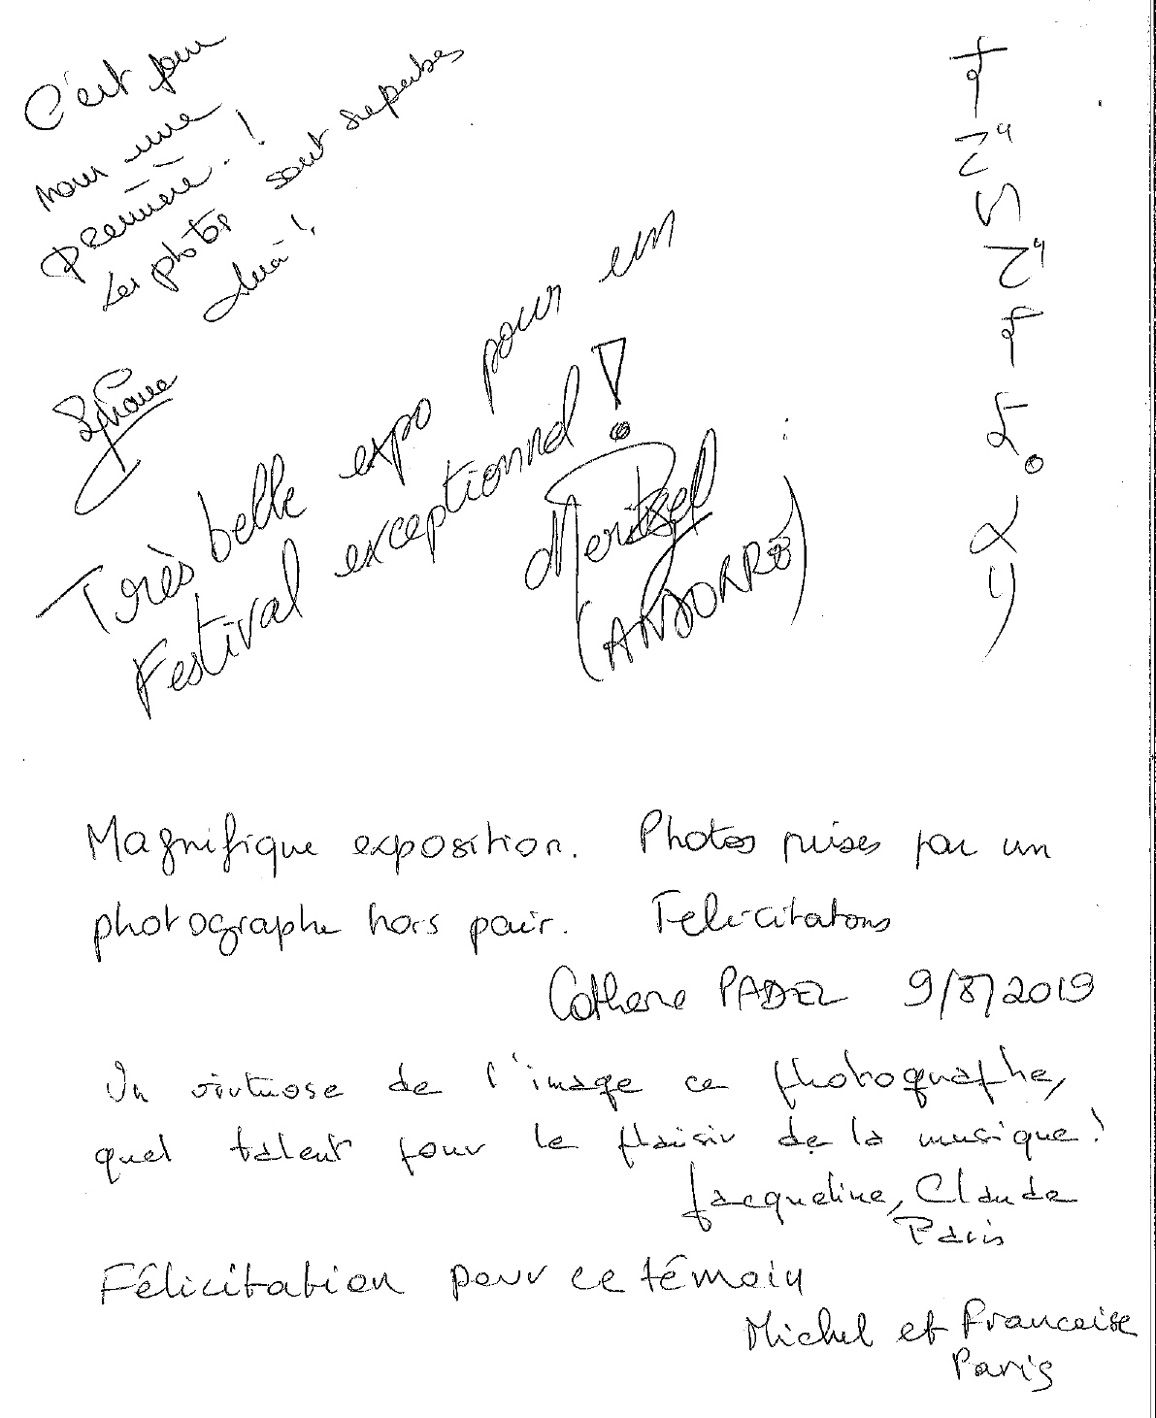 C'est pour
nous une
première !
Les photos sont superbes
Très belle expo pour un
Festival exceptionnel !
Meritxel
(ANDORRE)
Magnifique exposition. Photos prises par un
photographe hors pair. Felicitatons
Catherne PADEL 9/8/2019
Un virtuose de l'image ce photographe,
quel talent pour le plaisir de la musique !
Jacqueline, Claude
Paris
Félicitation pour ce témoin
Michel et Francoise
Paris